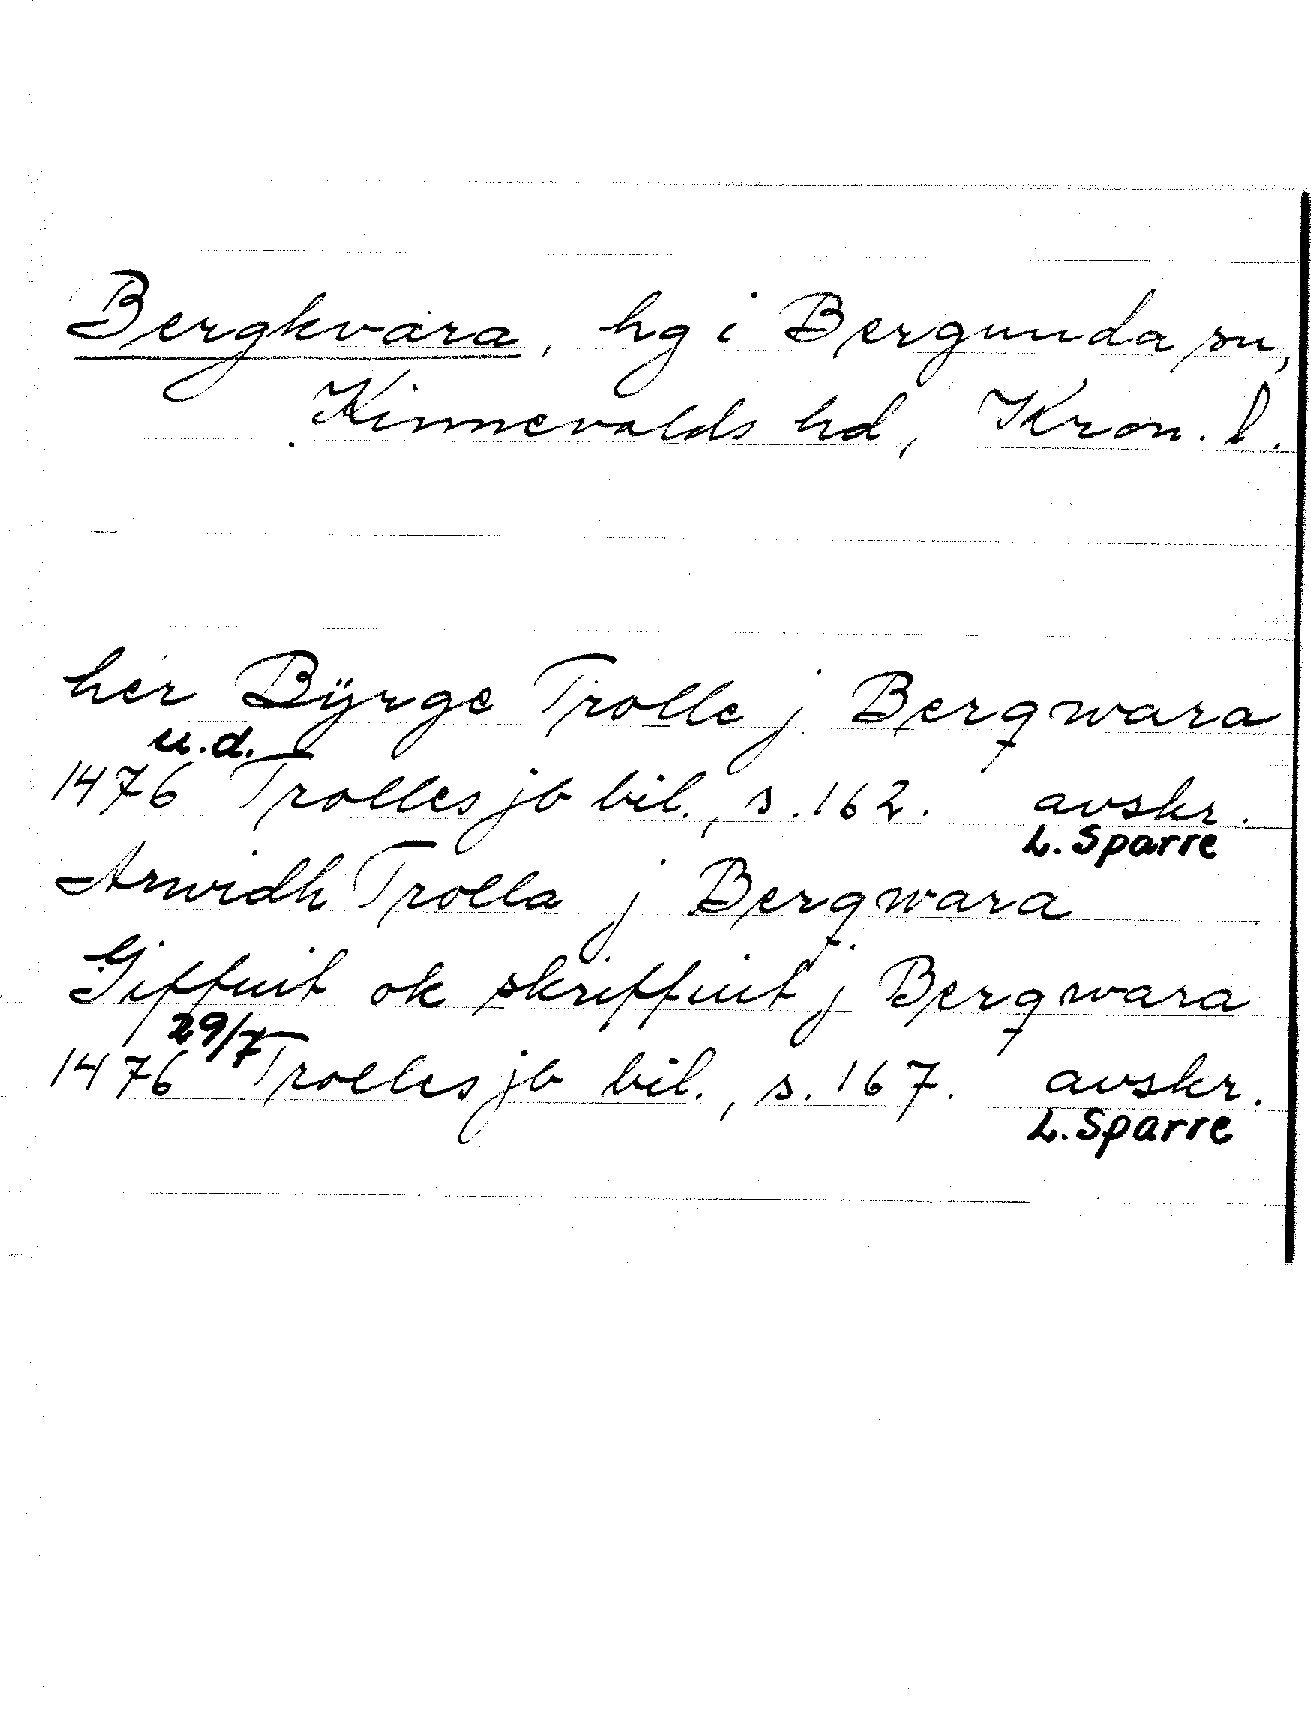 Bergkvara, hg i Bergunda sn,
Kinnevalds hd, Kron. l.
her Bÿrge Trolle j Bergwara
u.d.
1476 Trolles jb bil., s. 162. avskr.
L. Sparre
Arwidh Trolla j Bergwara
Giffuit ok skriffuit j Bergwara
29/7
1476 Trolles jb bil., s. 167. avskr.
L. Sparre